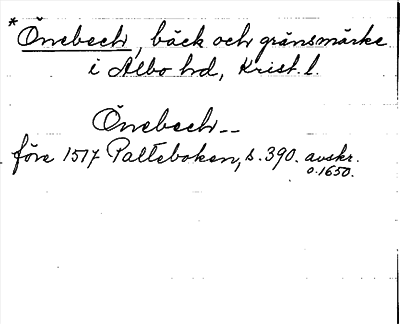 *Önebech, bäck och gränsmärke
i Albo hd, Krist. l.
Önebech--
före 1517 Palteboken, s. 390. avskr.
o. 1650.